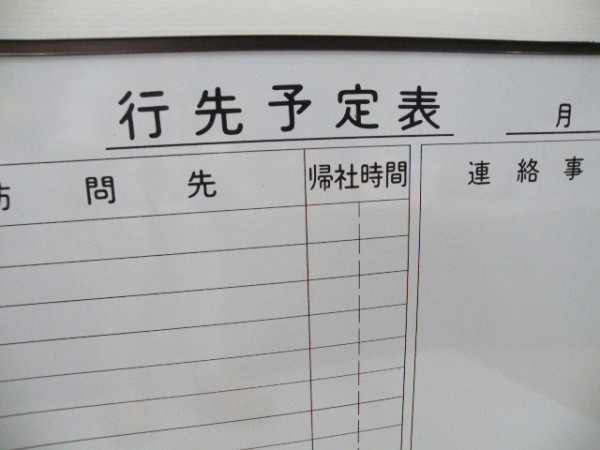 行先予定表
月
訪問先
帰社時間
連絡事